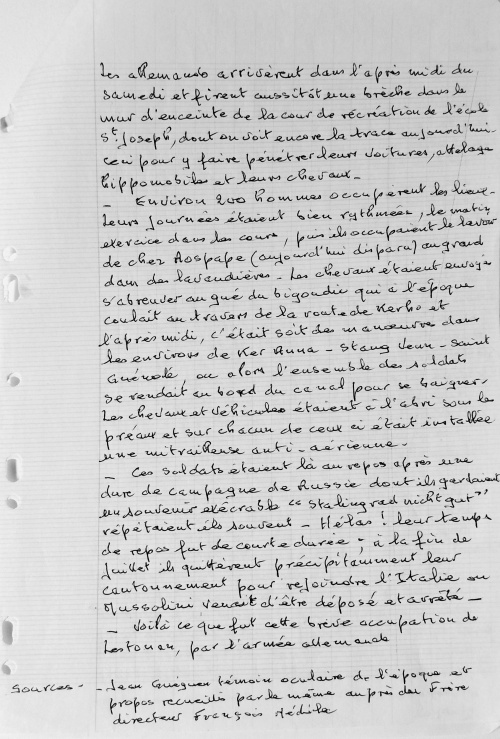 Les allemands arrivèrent dans l'après midi du
samedi et firent aussitôt une brèche dans le
mur d'enceinte de la cour de récréation de l'école
St Joseph, dont on voit encore la trace aujourd'hui
ceci pour y faire pénétrer leurs voitures, attelage
hippomobiles et leurs chevaux -
- Environ 200 hommes occupèrent les lieux -
Leurs journées étaient bien rythmées, le matin
exercice dans les cours, puis ils occupaient le lavoir
de chez Rospape (aujourd'hui disparu) au grand
dam des lavandières - Les chevaux étaient envoyés
s'abreuver au gué du bigoudic qui à l'époque
coulait au travers de la route de Kerho et
l'après midi, c'était soit des manœuvre dans
les environs de Ker Anna - Stang Venn - Saint
Guénolé, ou alors l'ensemble des soldats
se rendait au bord du canal pour se baigner.
Les chevaux et véhicules étaient à l'abri sous les
préaux et sur chacun de ceux ci était installée
une mitrailleuse anti-aérienne -
- Ces soldats étaient là au repos après une
dure de campagne de Russie dont ils gardaient
un souvenir exécrable "Stalingrad nicht gut"
répétaient ils souvent - Hélas! leur temps
de repos fut de courte durée ; à la fin de
Juillet ils quittèrent précipitamment leur
cantonnement pour rejoindre l'Italie ou
Mussolini venait d'être déposé et arrêté -
- Voilà ce que fut cette brève occupation de
Lestonan, par l'armée allemande
Sources - - Jean Guéguen témoin oculaire de l'époque et
propos recueillis par le même auprès du Frère
directeur François